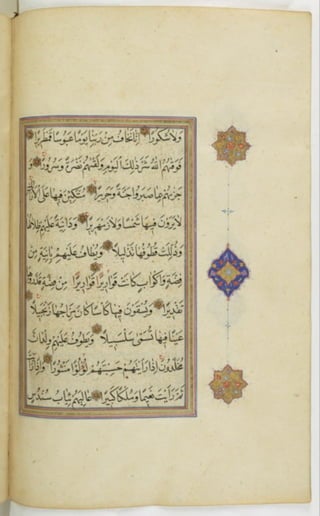 وَلَا شُكُورًا إِنَّا نَخَافُ مِنْ رَبِّنَا يَوْمًا عَبُوسًا قَمْطَرِيرًا
فَوَقٰهُمُ اللّٰهُ شَرَّ ذٰلِكَ الْيَوْمِ وَلَقّٰهُمْ نَضْرَةً وَسُرُورًا وَ
جَزٰهُمْ بِمَا صَبَرُوا جَنَّةً وَحَرِيرًا مُتَّكِئِينَ فِيهَا عَلَى الْأَرَائِكِ
لَا يَرَوْنَ فِيهَا شَمْسًا وَلَا زَمْهَرِيرًا وَدَانِيَةً عَلَيْهِمْ ظِلَالُهَا
وَذُلِّلَتْ قُطُوفُهَا تَذْلِيلًا وَيُطَافُ عَلَيْهِمْ بِآنِيَةٍ مِنْ
فِضَّةٍ وَأَكْوَابٍ كَانَتْ قَوَارِيرًا قَوَارِيرًا مِنْ فِضَّةٍ قَدَّرُوهَا
تَقْدِيرًا وَيُسْقَوْنَ فِيهَا كَأْسًا كَانَ مِزَاجُهَا زَنْجَبِيلًا
عَيْنًا فِيهَا تُسَمَّى سَلْسَبِيلًا وَيَطُوفُ عَلَيْهِمْ وِلْدَانٌ
مُخَلَّدُونَ إِذَا رَأَيْتَهُمْ حَسِبْتَهُمْ لُؤْلُؤًا مَنْثُورًا وَإِذَا رَأَيْتَ
ثَمَّ رَأَيْتَ نَعِيمًا وَمُلْكًا كَبِيرًا عَالِيَهُمْ ثِيَابُ سُنْدُسٍ